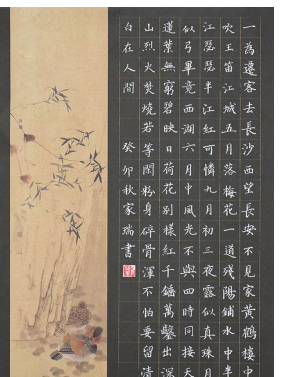 一為遷客去長沙西望長安不見家黃鶴樓中
吹玉笛江城五月落梅花一道殘陽鋪水中半
江瑟瑟半江紅可憐九月初三夜露似真珠月
似弓畢竟西湖六月中風光不與四時同接天
蓮葉無窮碧映日荷花別樣紅千錘萬鑿出深
山烈火焚燒若等閒粉身碎骨渾不怕要留清
白在人間 癸卯秋家瑞書